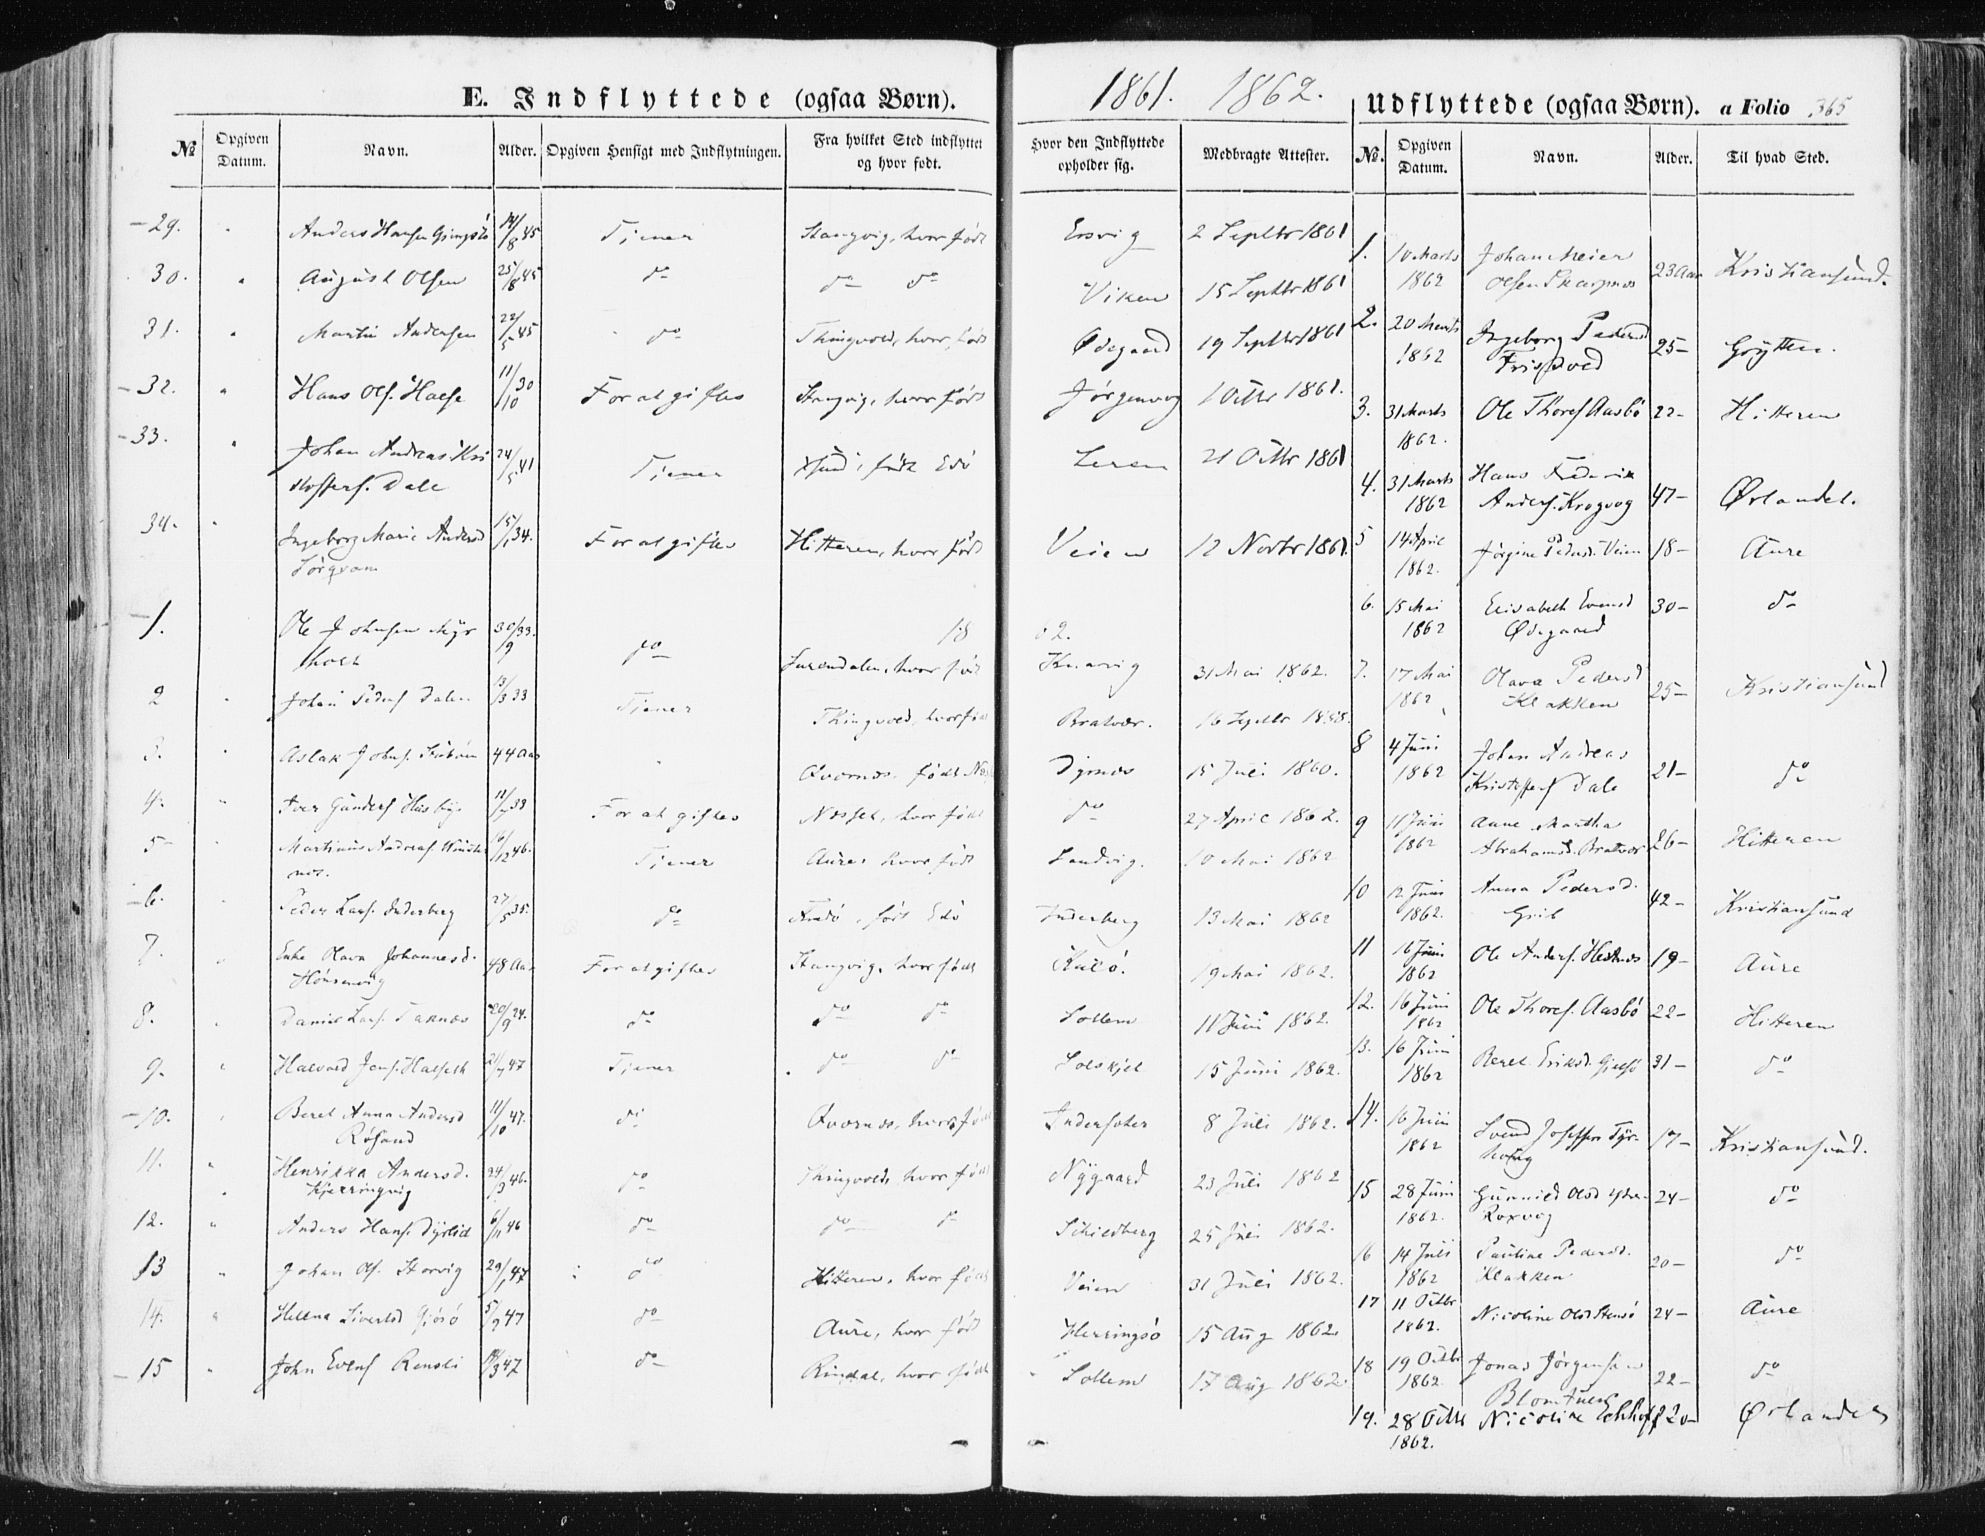 E. Indflyttede (ogsaa Børn).
1861. 1862.
Udflyttede (ogsaa Børn). a Folio 365
№ Opgiven Datum. Navn. Alder. Opgiven Hensigt med Indflytningen. Fra hvilket Sted indflyttet og hvor født. Hvor den Indflyttede opholder sig. Medbragte Attester.
29. " Anders Hansen 14/8 45 Tjener Stangvig, hvor født Ersvig 2 Septbr 1861
30. " August Olsen 25/8 45 do do do Viken 15 Septbr 1861
31. " Martin Andersen 22/5 45 do Thingvold, hvor født Ødegaard 19 Septbr 1861
32. " Hans Ols. Halse 11/10 30 For at giftes Stangvig, hvor født Jørgenvog 1 Octbr 1861.
33. " Johan Andreas Kri
stoffers. Dale 24/5 41 Tjener Xsund, født Edø Leren 21 Octbr 1861
34. " Ingeborg Marie Andersd 15/1 34. For at giftes Hitteren, hvor født Veien 12 Novbr 1861.
18 62.
1. Ole Johnsen Myr
holt 30/9 33. do Surendalen, hvor født Knarvig 31 Mai 1862.
2 " Johan Peders Dalen 13/3 33 Tjener Thingvold, hvor født Bratvær. 16 Septbr 1858.
3. " Aslak Johns. 44 Aar " Qvernæs, født Dyrnæs 15 Juli 1860.
4. " Iver Gunders Husbye 11/7 33 For at giftes Nesset, hvor født do 27 April 1862.
5 " Martinus Andreas
nes. 16/12 46. Tjener Aure, hvor født Sandvig. 10 Mai 1862
6. " Peder Lars. Inderberg 27/5 35. do Fredø, født Edø Inderberg 13 Mai 1862
7. " Enke Olava Johannesd.
Hønsvig 48 Aar For at giftes Stangvig, hvor født Kalø. 19 Mai 1862.
8. " Daniel Lars. Taknæs 20/9 24. do do do Sollem 11 Juni 1862.
9. " Halvard Jens. Halseth 21/7 47 Tjener do do Solskjel 15 Juni 1862.
10. " Beret Anna Andersd
Røsand 11/10 47. do Qvernæs, hvor født Indersæter 8 Juli 1862.
11. " Henrikka Andersd.
Kjerringvig 24/3 46. do Thingvold, hvor født Nygaard 23 Juli 1862
12. " Anders Hans. Dyrlid 6/11 46 do do do Schiedberg 25 Juli 1862.
13 " Johan Ols. Storvig 29/1 47 do Hitteren, hvor født Veien 31 Juli 1862.
14. " Helena Sivertsd Gjøsø 5/9 47 do Aure, hvor født Herringsø 15 Aug 1862.
15 " John Evens Rensli 9/3 47 do Rindal, hvor født Sollem 17 Aug 1862.
№. Opgiven Datum. Navn. Alder. Til hvad Sted.
1. 10 Marts
1862 Johan Meier
Olsen Skarpnes 23 Aar Kristiansund.
2. 20 Marts
1862 Ingeborg Pedersd
Frisvold 25- Grytten.
3. 31 Marts
1862. Ole Thores. Aasbø 22- Hitteren
4. 31 Marts
1862 Hans Frederik
Anders. Krogvog 47- Ørlandet.
5 14 April
1862. Jørgine Pedersd. Veien 18- Aure
6. 15 Mai
1862 Elisabeth Evensd
Ødegaard 30- do
7. 17 Mai
1862 Olava Pedersd
Klakken 25- Kristiansund
8 4 Juni
1862 Johan Andreas
Kristoffers Dale 21- do
9 11 Juni
1862 Anne Martha
Abrahamsd. Bratvær 26- Hitteren
10 12 Juni
1862. Anna Pedersd.
Grib 42- Kristiansund
11 16 Juni
1862 Ole Anders. Hestnes 19- Aure
12. 16 Juni
1862 Ole Thores. Aasbø 22- Hitteren
13. 16 Juni
1862 Beret Eriksd. Gjelsø 31- do
14. 16 Juni
1862 Svend Josephsen 17- Kristiansund.
15 28 Juni
1862. Gunnild Olsd
Roxvog 24- do
16 14 Juli
1862 Pauline Pedersd.
Klakken 20- do
17 11 Octbr
1862. Nicoline Olsd Stensø 24- Aure
18 19 Octbr
1862. Jonas Jørgensen 22- do
19. 28 Octbr
1862. Nicoline Eckhoff 20- Ørlandet